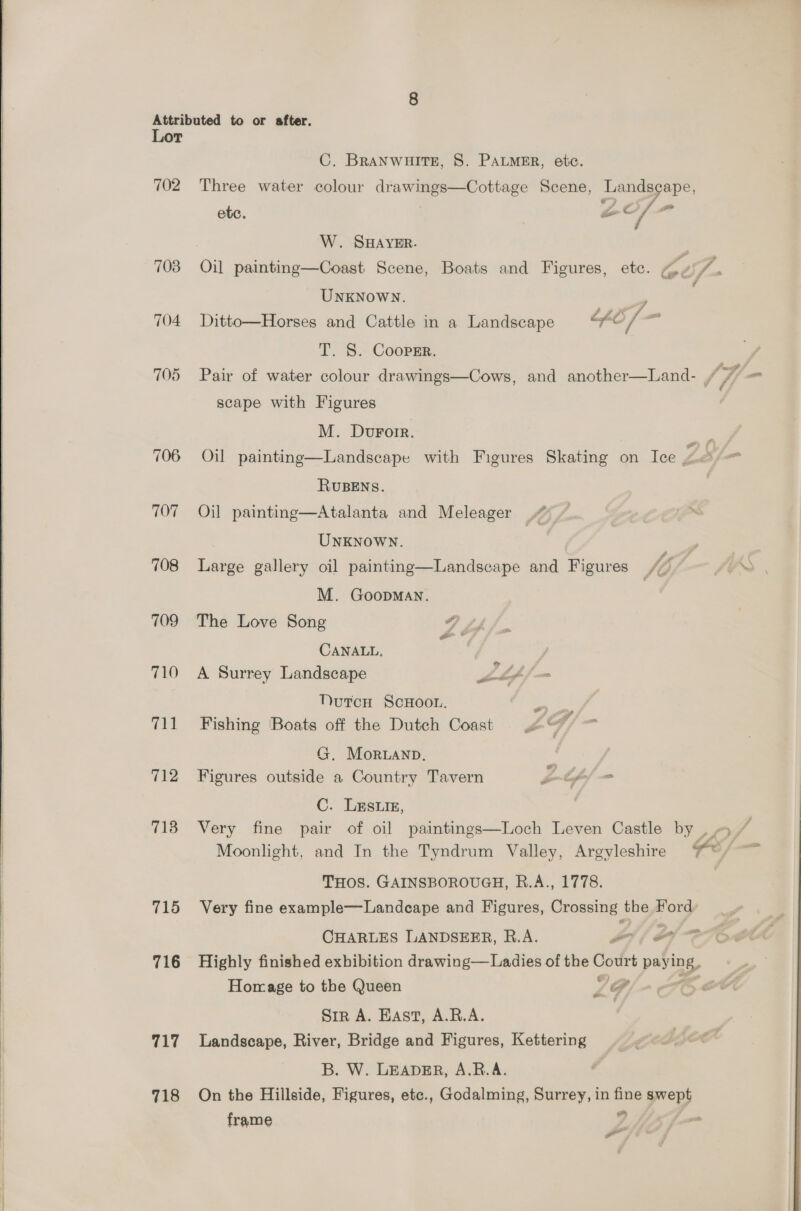 8
Attributed to or after.
Lot
C. Branwhite, S. Palmer, etc.
702 Three water colour drawings—Cottage Scene, Landscape,
etc. 20/-
W. Shayer.
703 Oil painting—Coast Scene, Boats and Figures, etc.
Unknown.
704 Ditto—Horses and Cattle in a Landscape
T. S. Cooper.
705 Pair of water colour drawings—Cows, and another—Land-
scape with Figures
M. Dufoir.
706 Oil painting—Landscape with Figures Skating on Ice
Rubens.
707 Oil painting—Atalanta and Meleager
Unknown.
708 Large gallery oil painting—Landscape and Figures
M. Goodman.
709 The Love Song
Canall,
710 A Surrey Landscape
Dutch School.
711 Fishing Boats off the Dutch Coast
G. Morland.
712 Figures outside a Country Tavern
C. Leslie,
713 Very fine pair of oil paintings—Loch Leven Castle by
Moonlight, and In the Tyndrum Valley, Argyleshire
Thos. Gainsborough, R.A., 1778.
715 Very fine example—Landcape and Figures, Crossing the Ford
Charles Landseer, R.A.
716 Highly finished exhibition drawing—Ladies of the Court paying
Homage to the Queen
Sir A. East, A.R.A.
717 Landscape, River, Bridge and Figures, Kettering
B. W. Leader, A.R.A.
718 On the Hillside, Figures, etc., Godalming, Surrey, in fine swept
frame